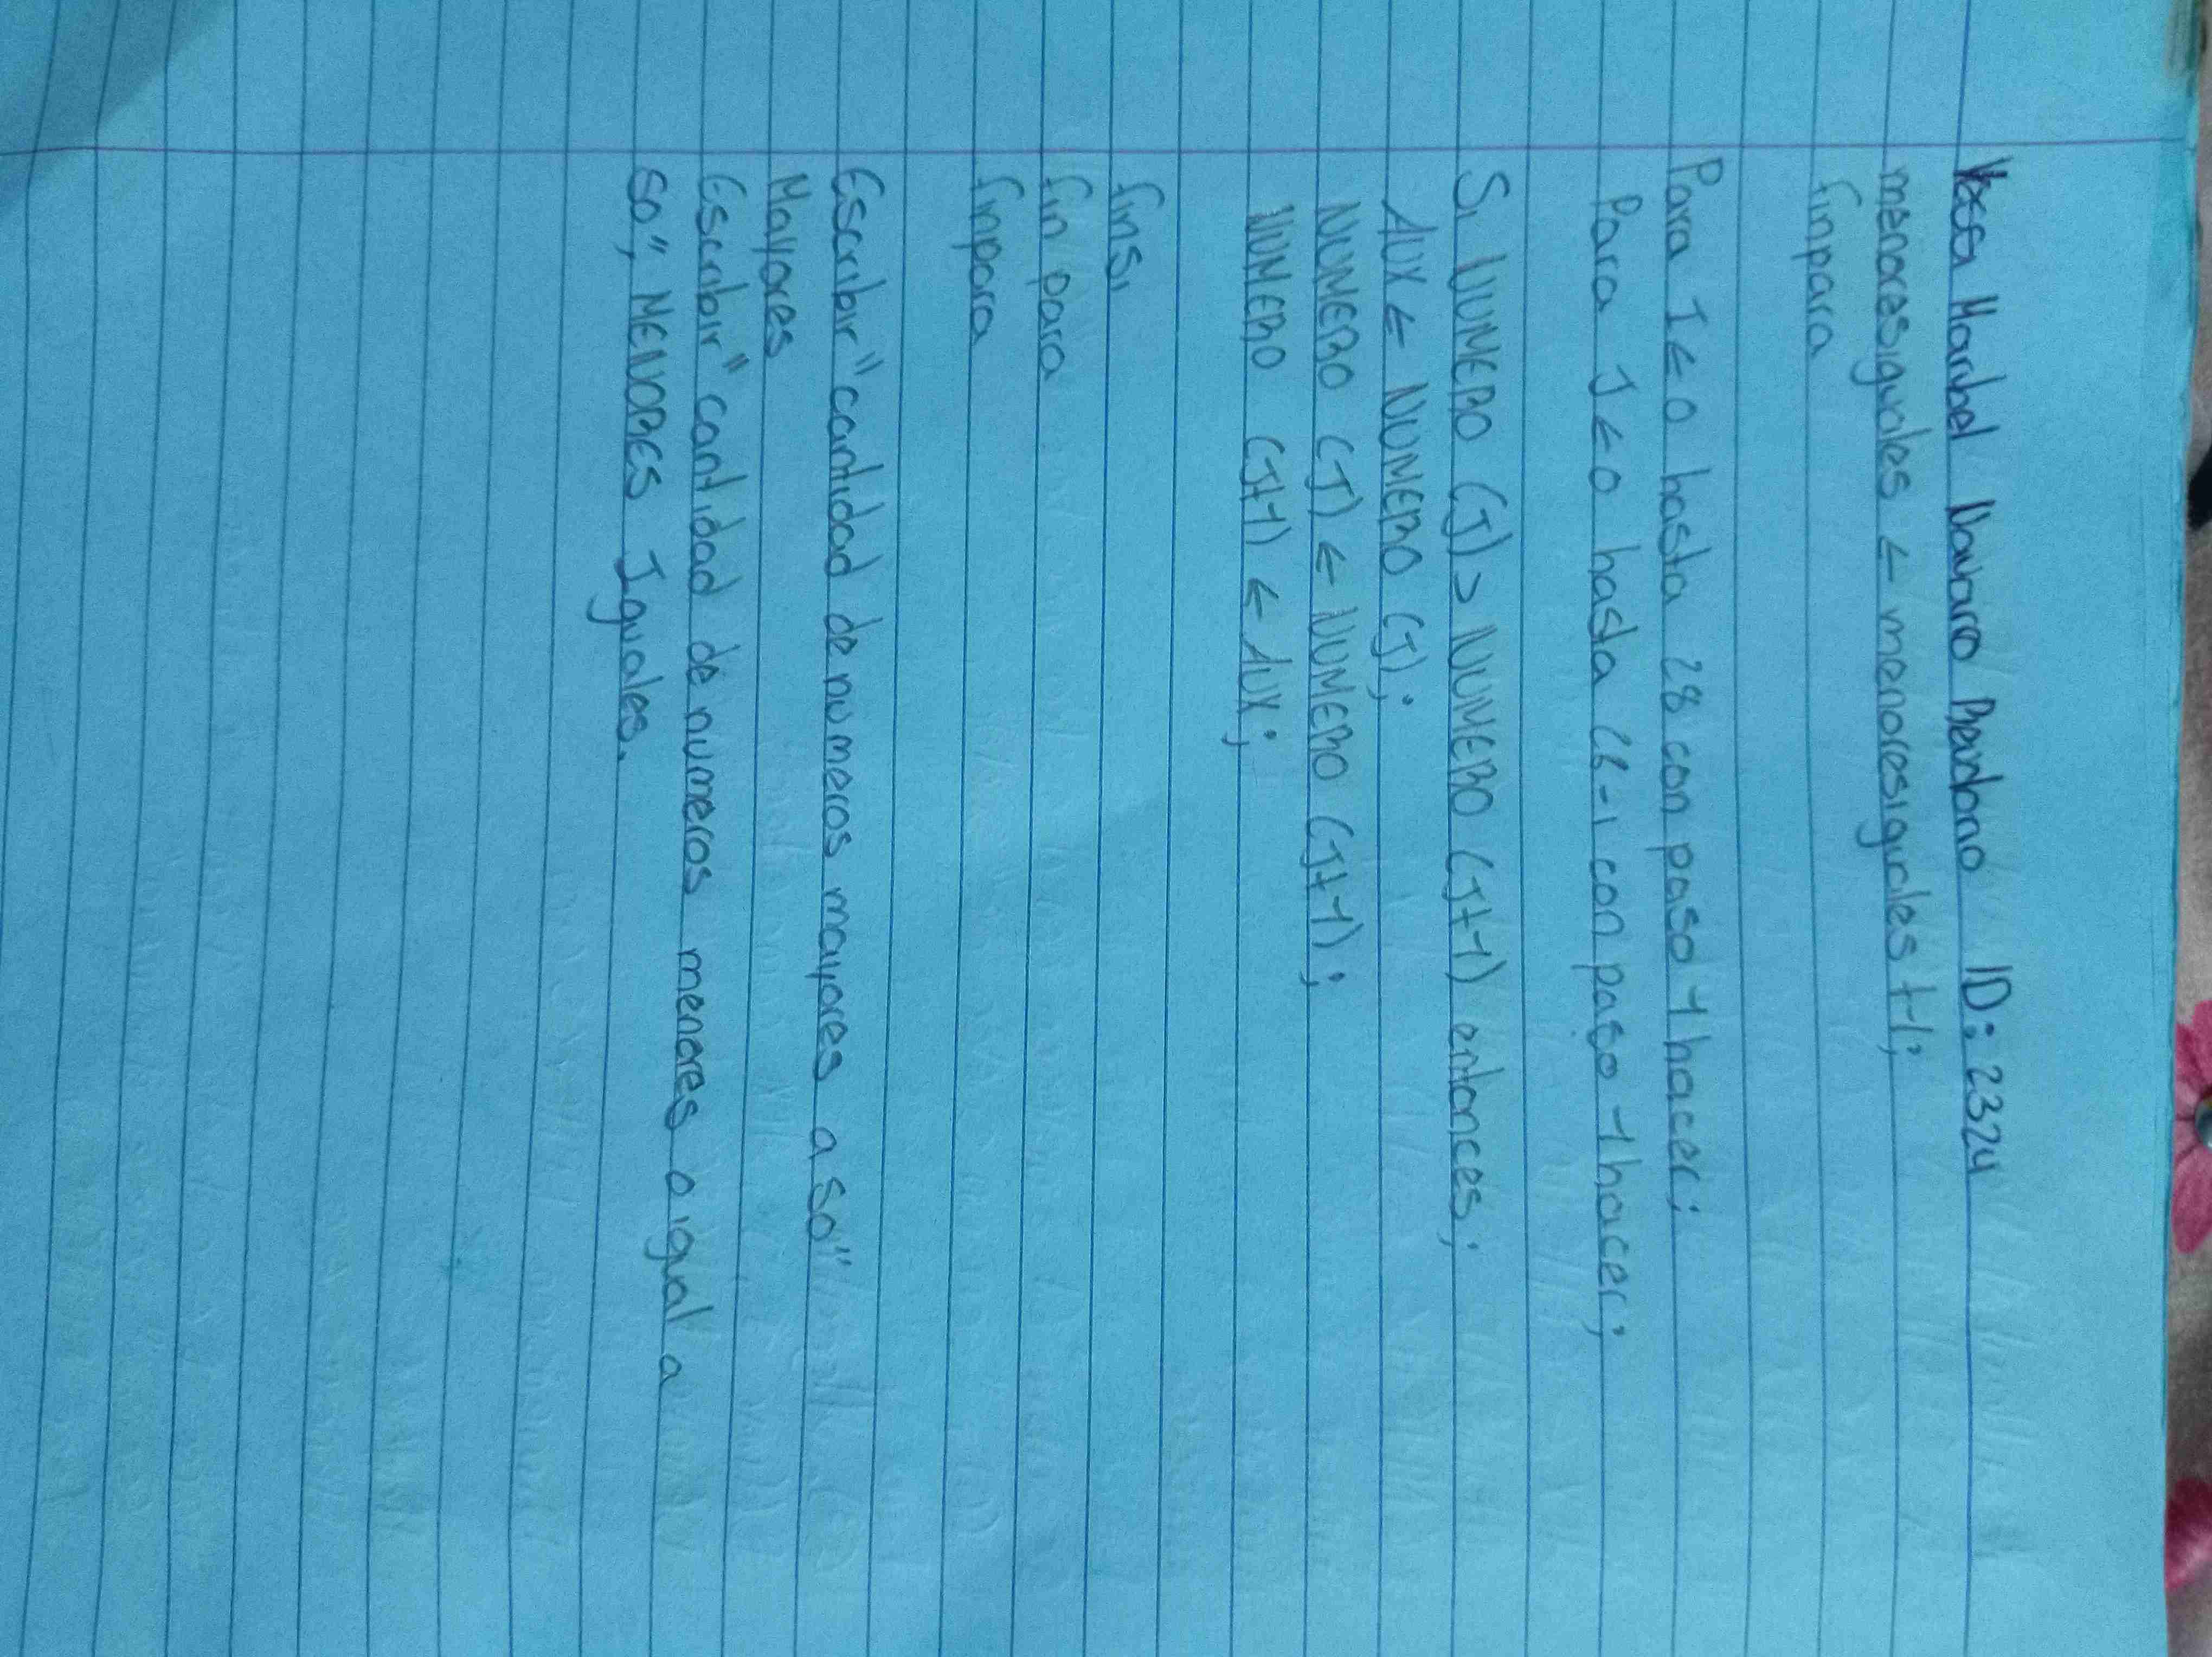 Maribel Navarro ID: 2324
menoresiguales ← menoresiguales +1;
finpara
Para I ← 0 hasta 28 con paso 1 hacer;
Para J ← 0 hasta 28-1 con paso 1 hacer;
Si NUMERO (J) > NUMERO (J+1) entonces;
AUX ← NUMERO (J);
NUMERO (J) ← NUMERO (J+1);
NUMERO (J+1) ← AUX;
finsi
fin para
finpara
Escribir "cantidad de numeros mayores a 50"
Mayores
Escribir "cantidad de numeros menores o igual a
50", MENORES Iguales.